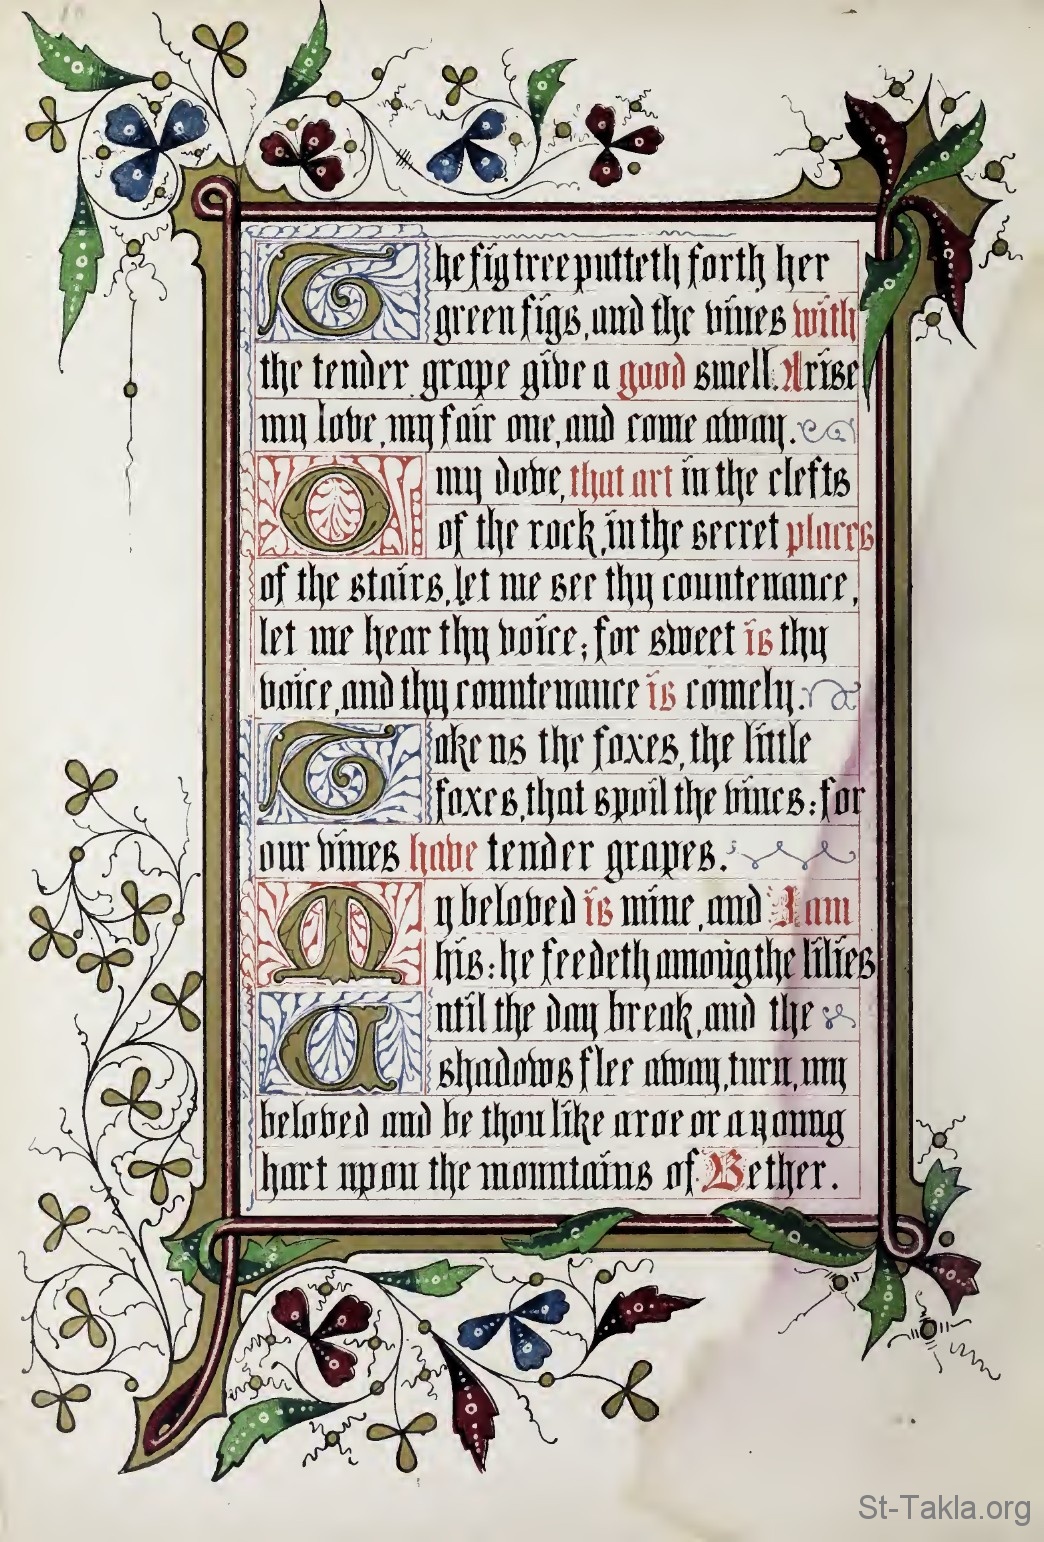 The fig tree putteth forth her
green figs, and the vines with
the tender grape give a good smell. Arise
my love, my fair one, and come away.
O my dove, that art in the clefts
of the rock, in the secret places
of the stairs, let me see thy countenance,
let me hear thy voice; for sweet is thy
voice, and thy countenance is comely.
Take us the foxes, the little
foxes, that spoil the vines: for
our vines have tender grapes.
My beloved is mine, and I am
his: he feedeth among the lilies
Until the day break, and the
shadows flee away, turn, my
beloved and be thou like a roe or a young
hart upon the mountains of Bether.
St-Takla.org